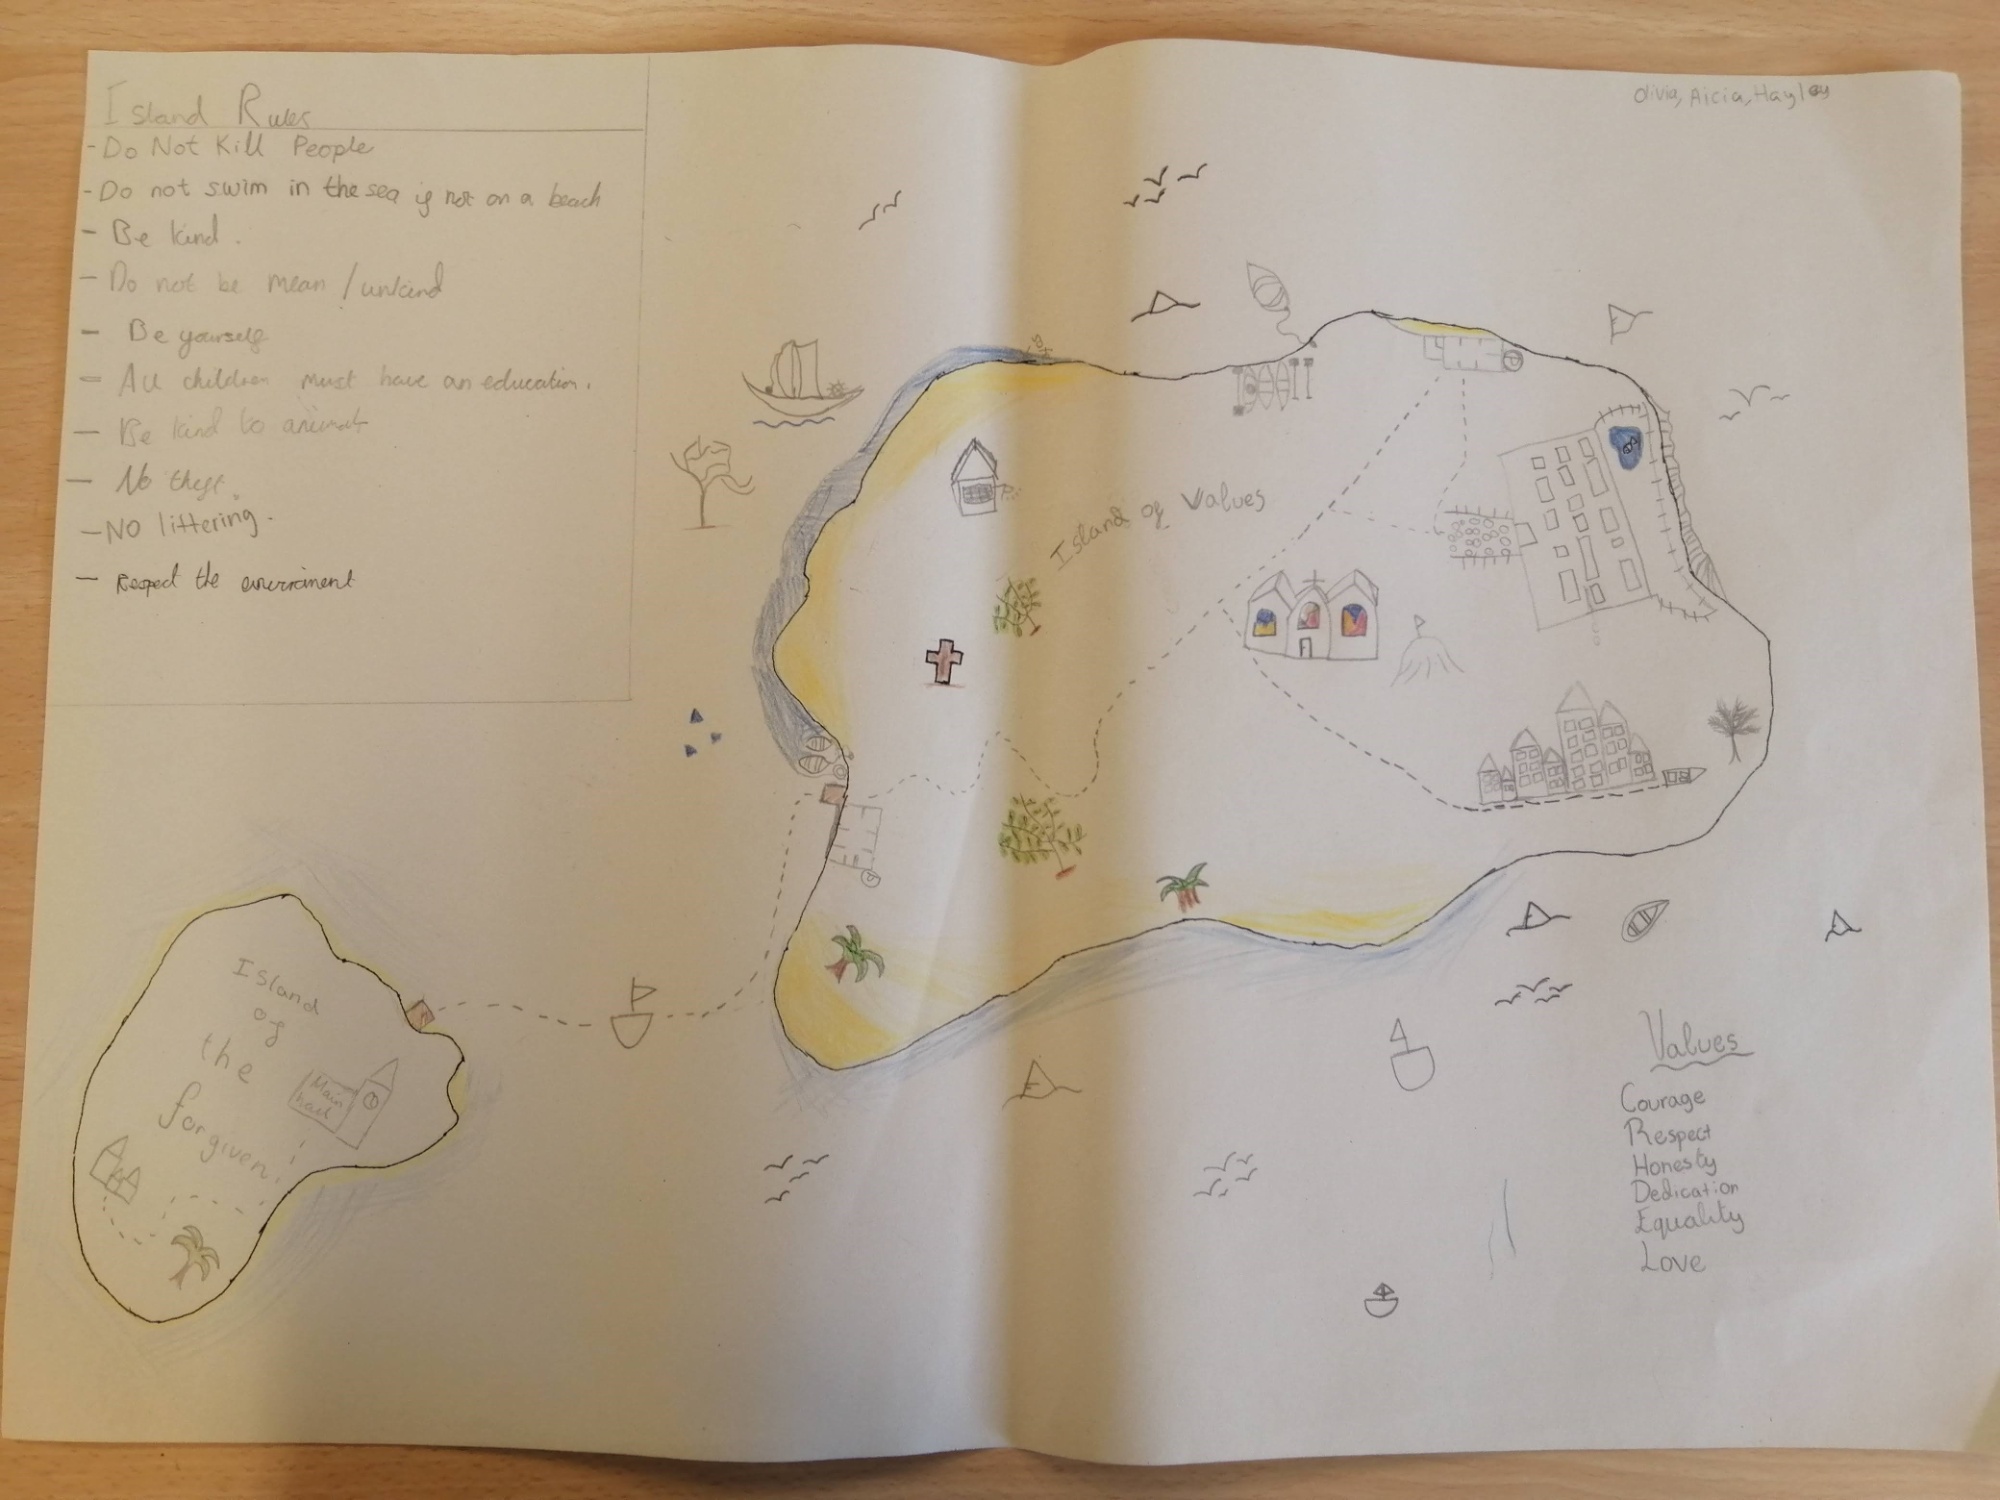 Island Rules
- Do Not Kill People
- Do not swim in the sea if not on a beach
- Be kind.
- Do not be mean / unkind
- Be yourself
- All children must have an education.
- Be kind to animals
- No theft.
- NO littering.
- Respect the enviroment
Olivia, Alcia, Hayley
Island of Values
Island
of
the
forgiven
Main
hall
Values
Courage
Respect
Honesty
Dedication
Equality
Love